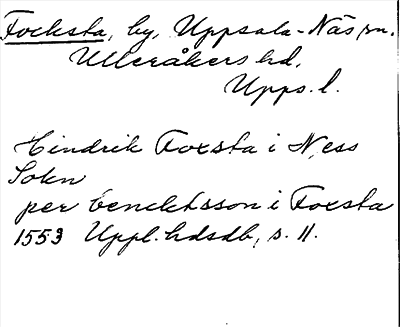 Focksta, by, Uppsala-Näs sn.
Ulleråkers hd,
Upps. l.
Hindrik Foxsta i Ness
Sokn
per bencktsson i Foxsta
1553 Uppl. hdsdb, s. 11.